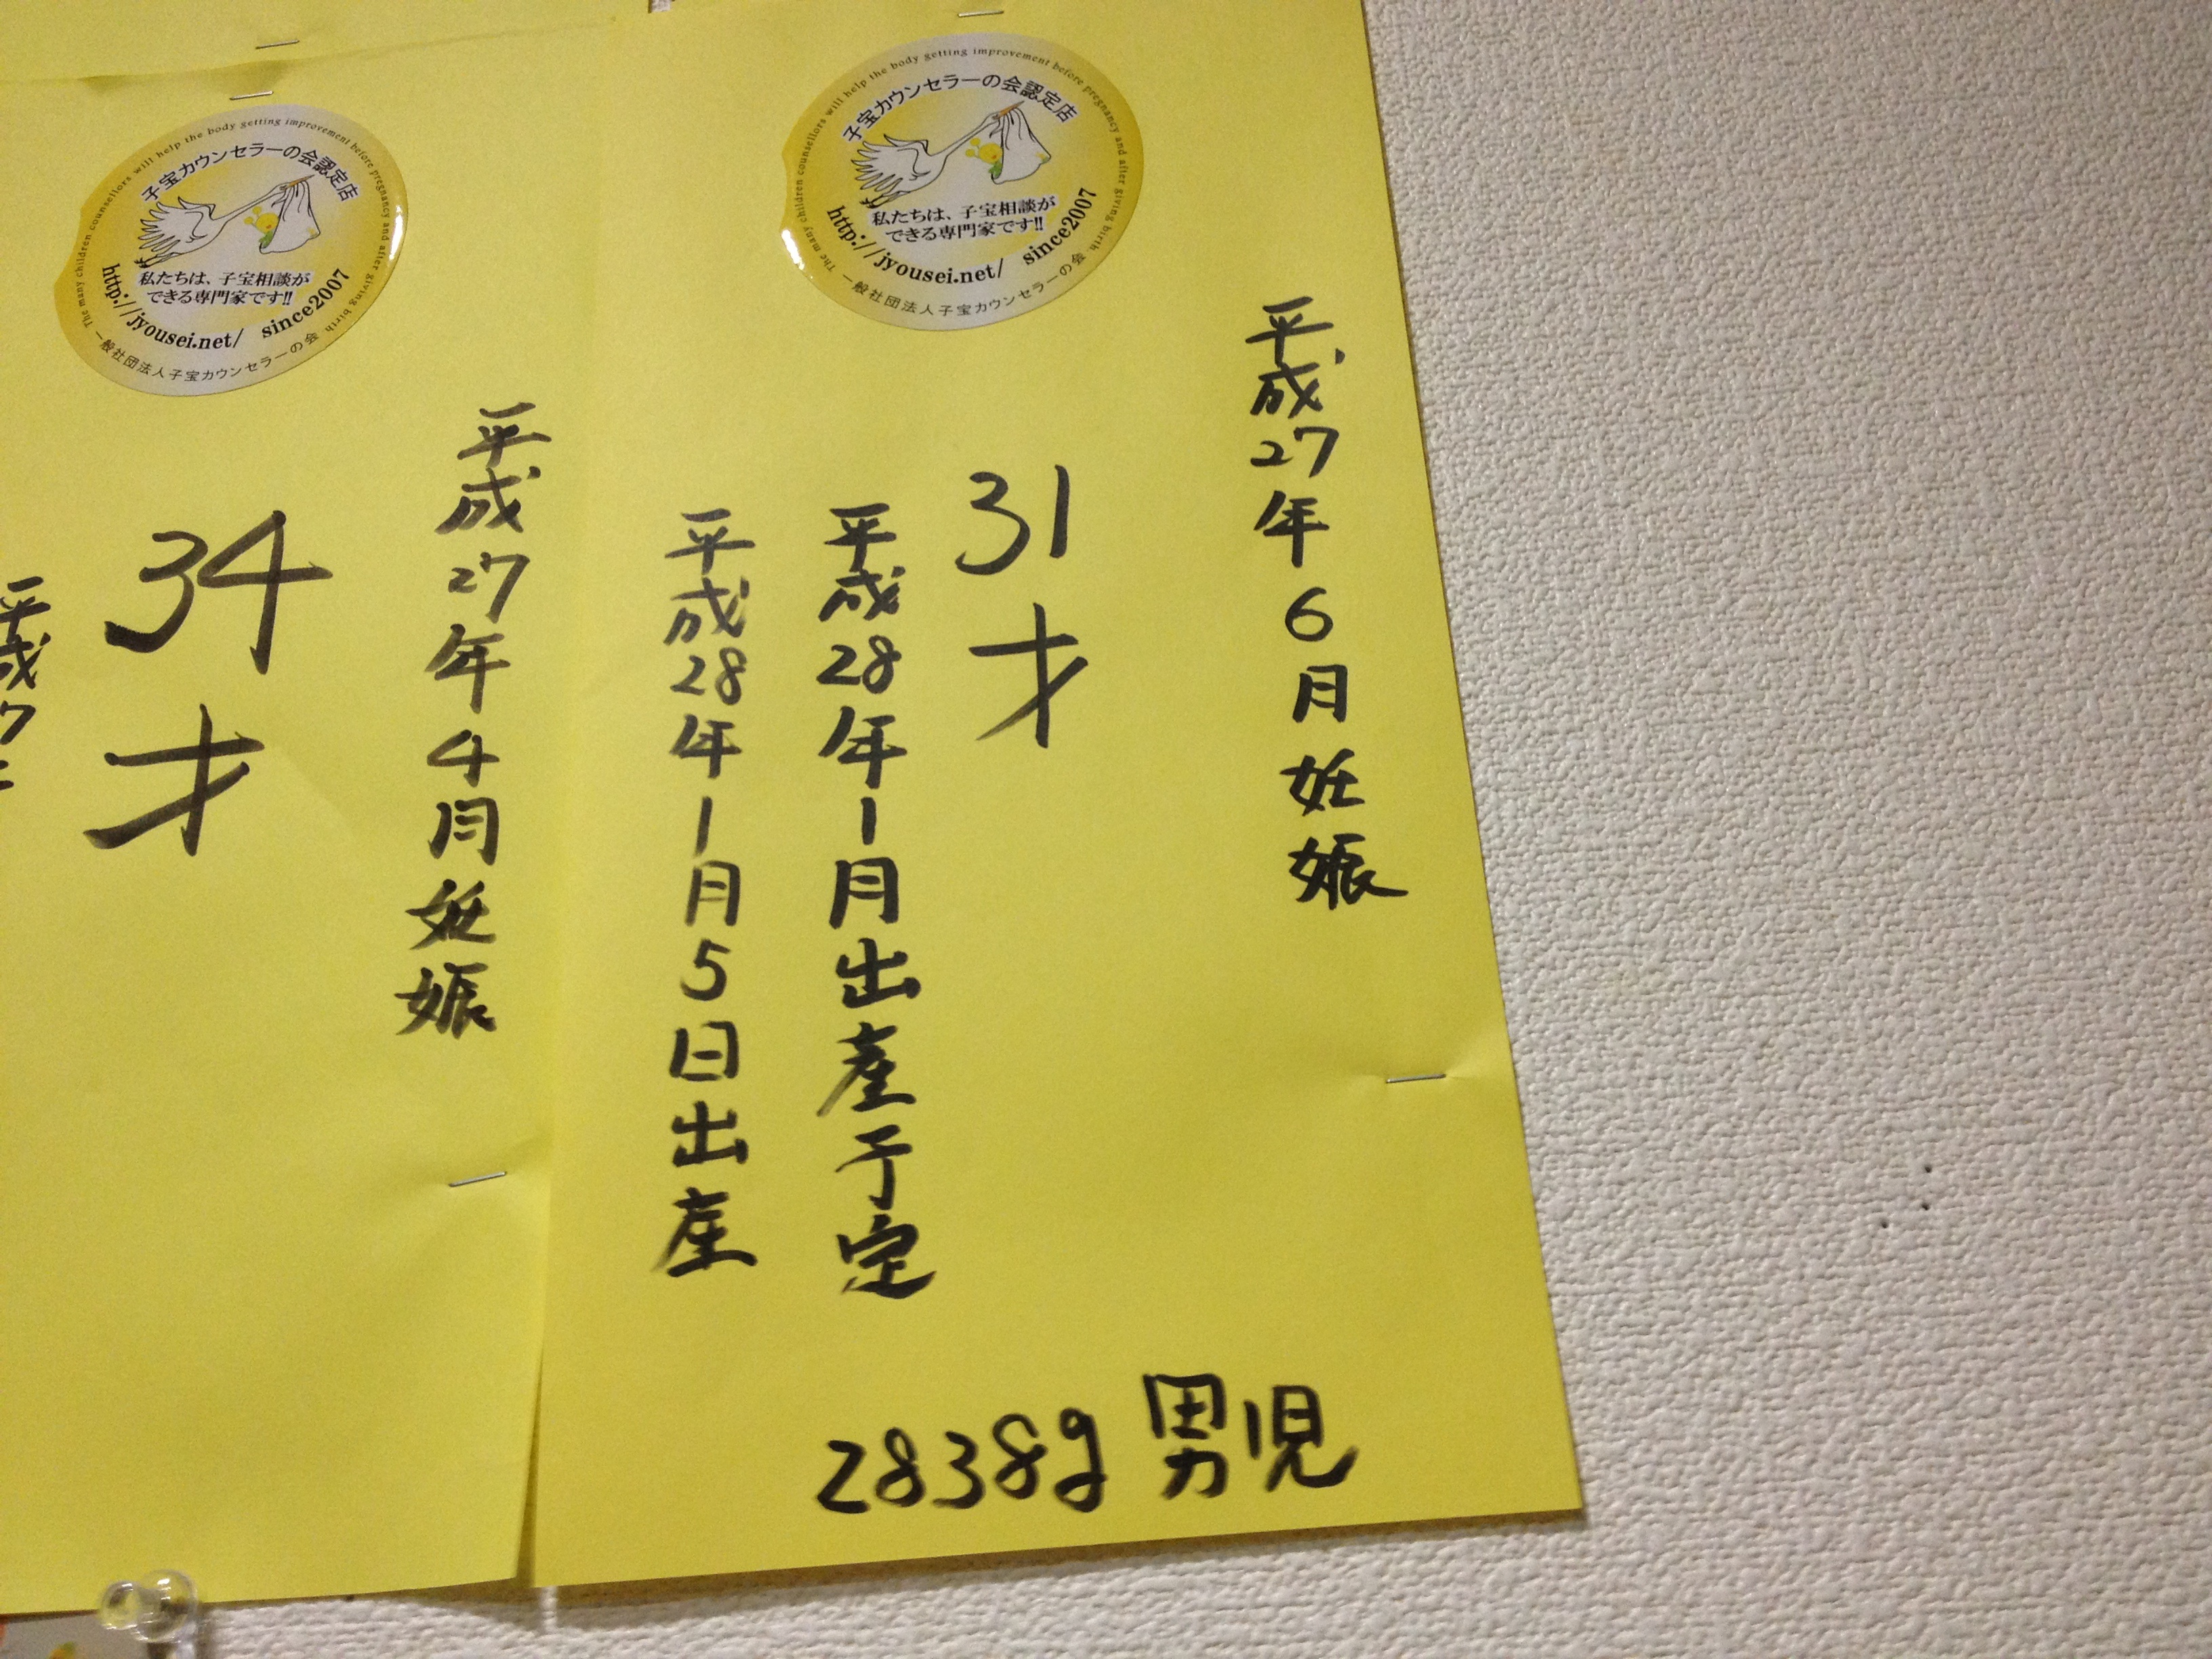 The many children counsellors will help the body getting improvement before pregnancy and after giving birth
子宝カウンセラーの会認定店
私たちは、子宝相談が
できる専門家です!!
http://jyousei.net/ since2007
一般社団法人子宝カウンセラーの会
平成27年6月妊娠
31才
平成28年1月出産予定
平成28年1月5日出産
2838g 男児
The many children counsellors will help the body getting improvement before pregnancy and after giving birth
子宝カウンセラーの会認定店
私たちは、子宝相談が
できる専門家です!!
http://jyousei.net/ since2007
一般社団法人子宝カウンセラーの会
平成27年4月妊娠
34才
平成